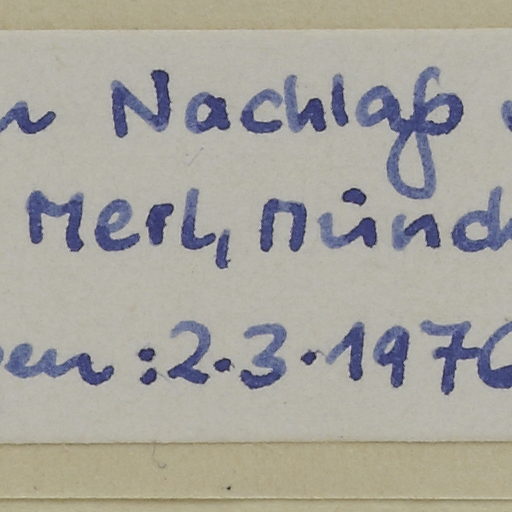 Nachlaß
Merl, Münch
: 2.3.1976